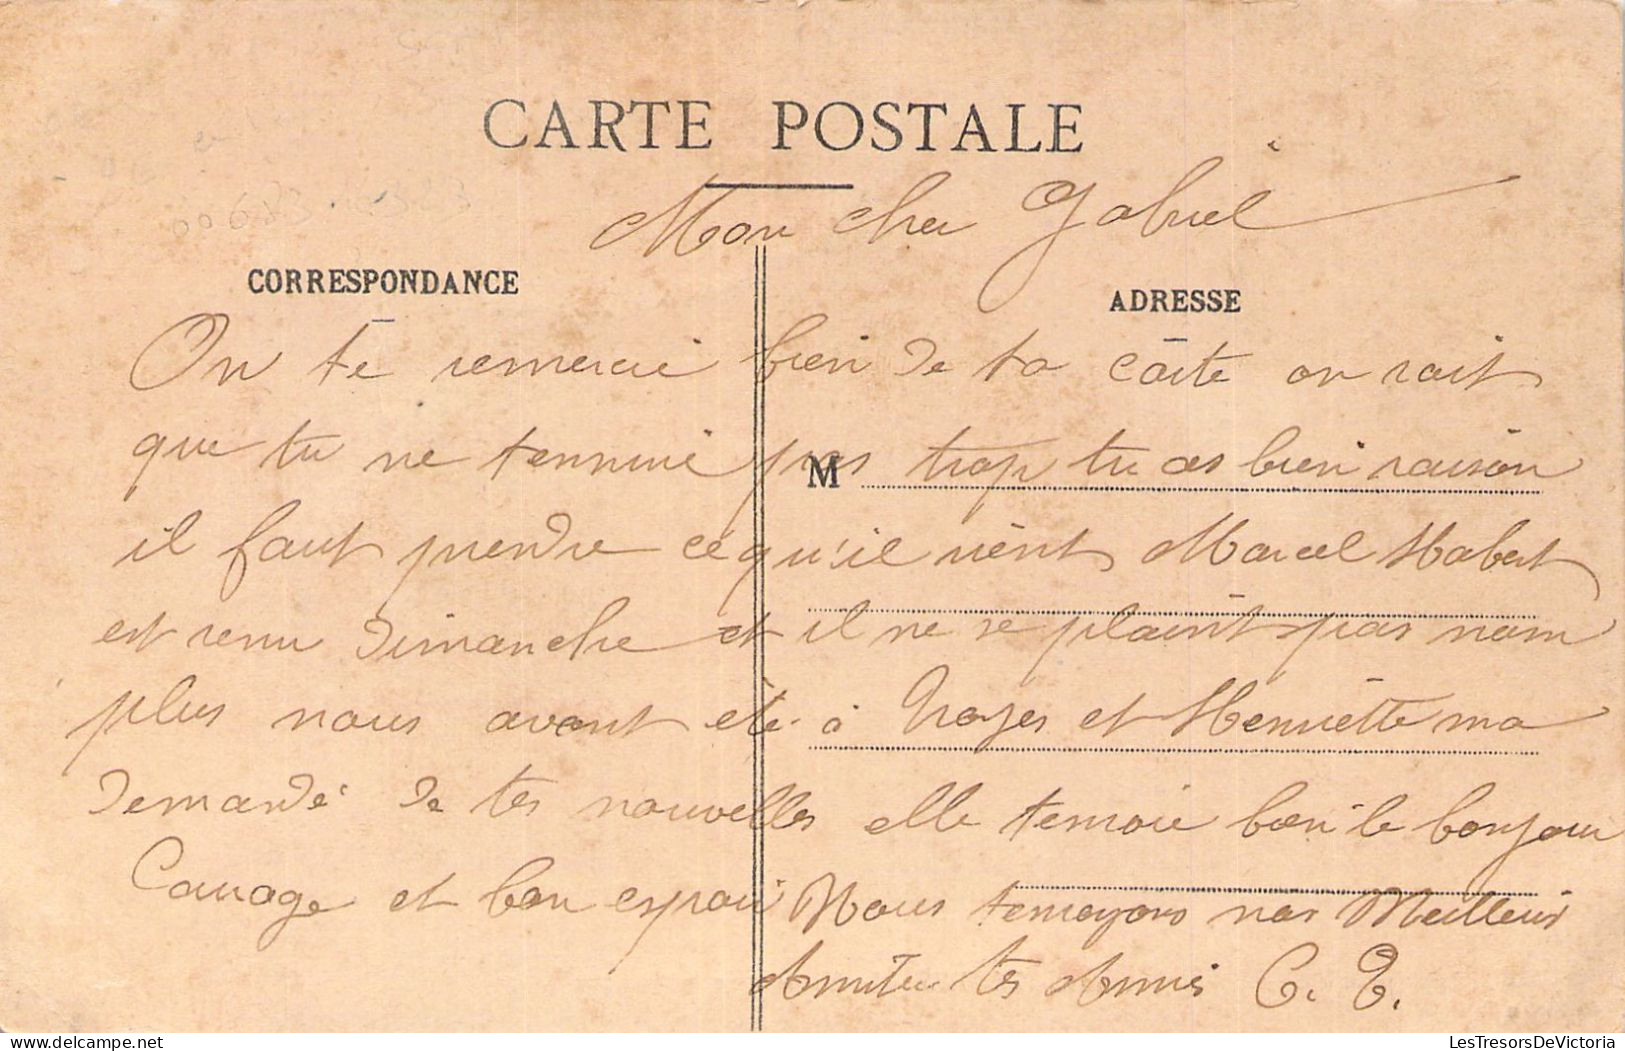 CARTE POSTALE
Mon cher Gabriel
CORRESPONDANCE
ADRESSE
On te remerci bien de ta cârte on voit
que tu ne tennuié pas trop tu as bien raison
M
il faut prendre ce qu'il vient Marcel Habert
est venu Dimanche et il ne se plaint pas nom
plus nous avont été à Troyes et Henriètte ma
demandé de tes nouvelles elle temoie bien le bonjour
Courage et bon espoir Nous temoyons nos Meilleurs
Amitié tes Amis C. T.
LesTresorsDeVictoria
delcampe.net